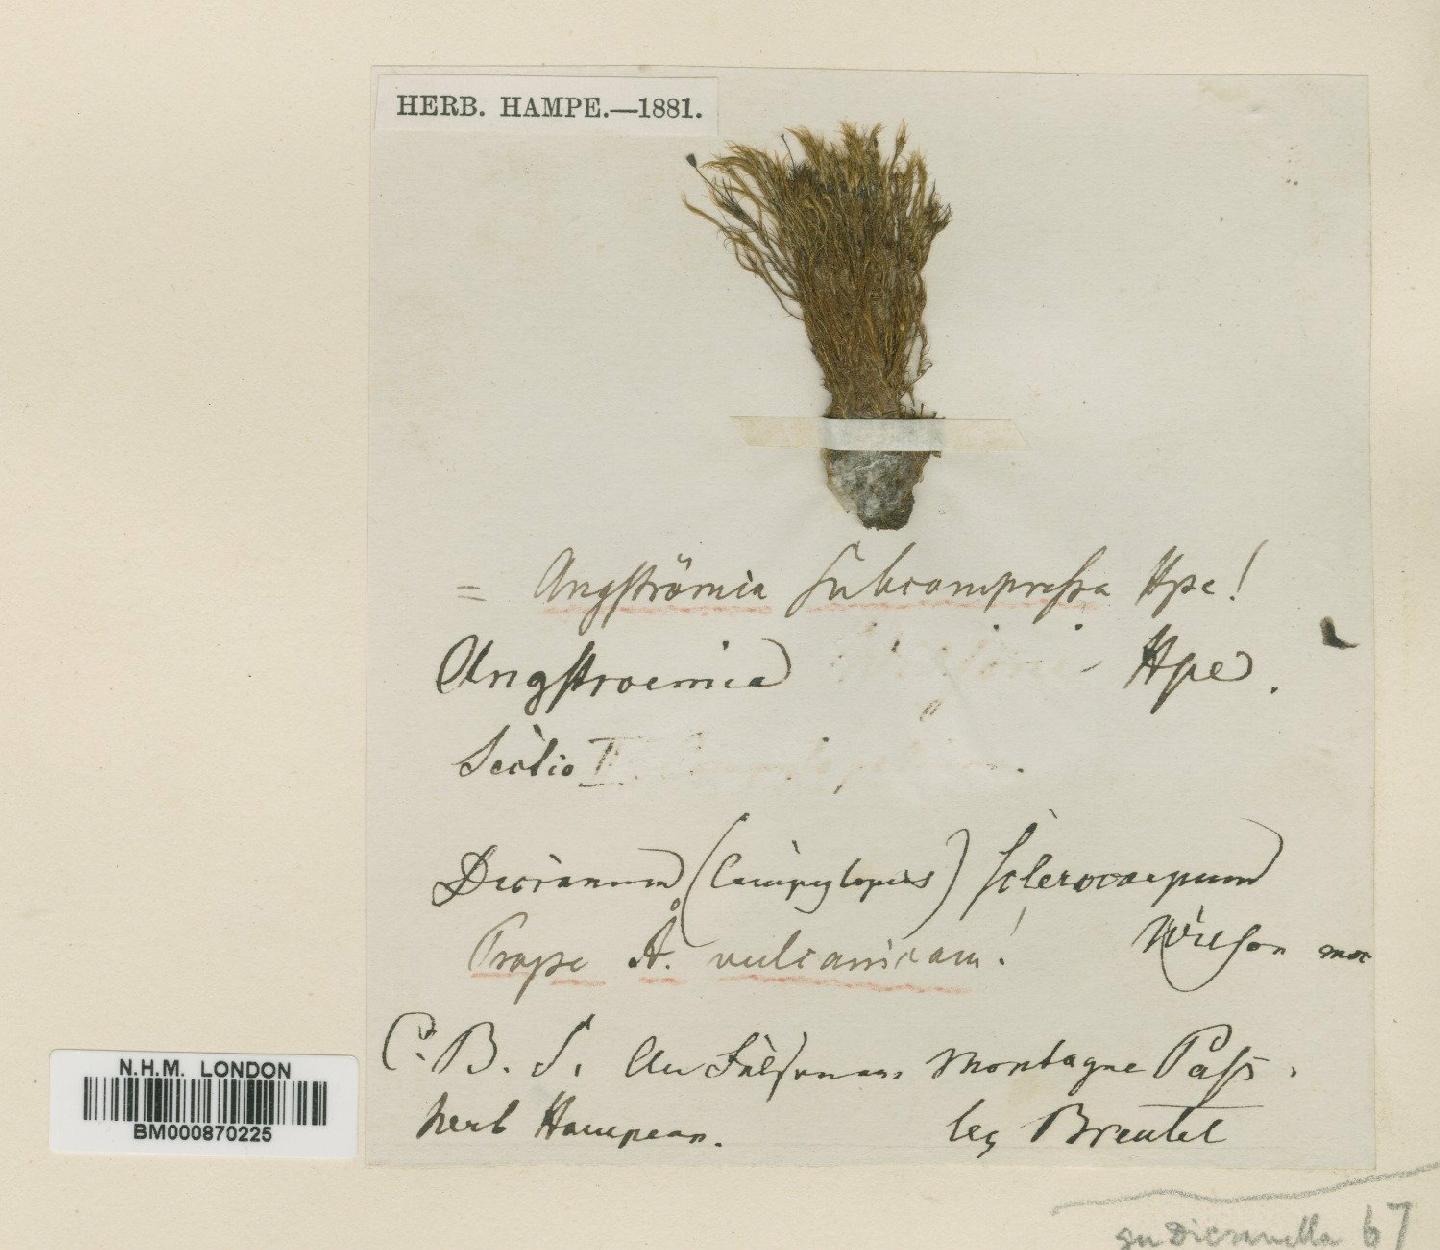 HERB. HAMPE.—1881.
= Angströmia subcompressa Hpe!
Angstroemia Hpe.
Sectio II
Dicranum (Campylopus) sclerocarpum
Wilson msc
Prope Å. vulcanicam!
C. B. S. Au Felsen am Montagne Pass.
herb Hampean. leg Breutel
N.H.M. LONDON
BM000870225
Dicranella 67